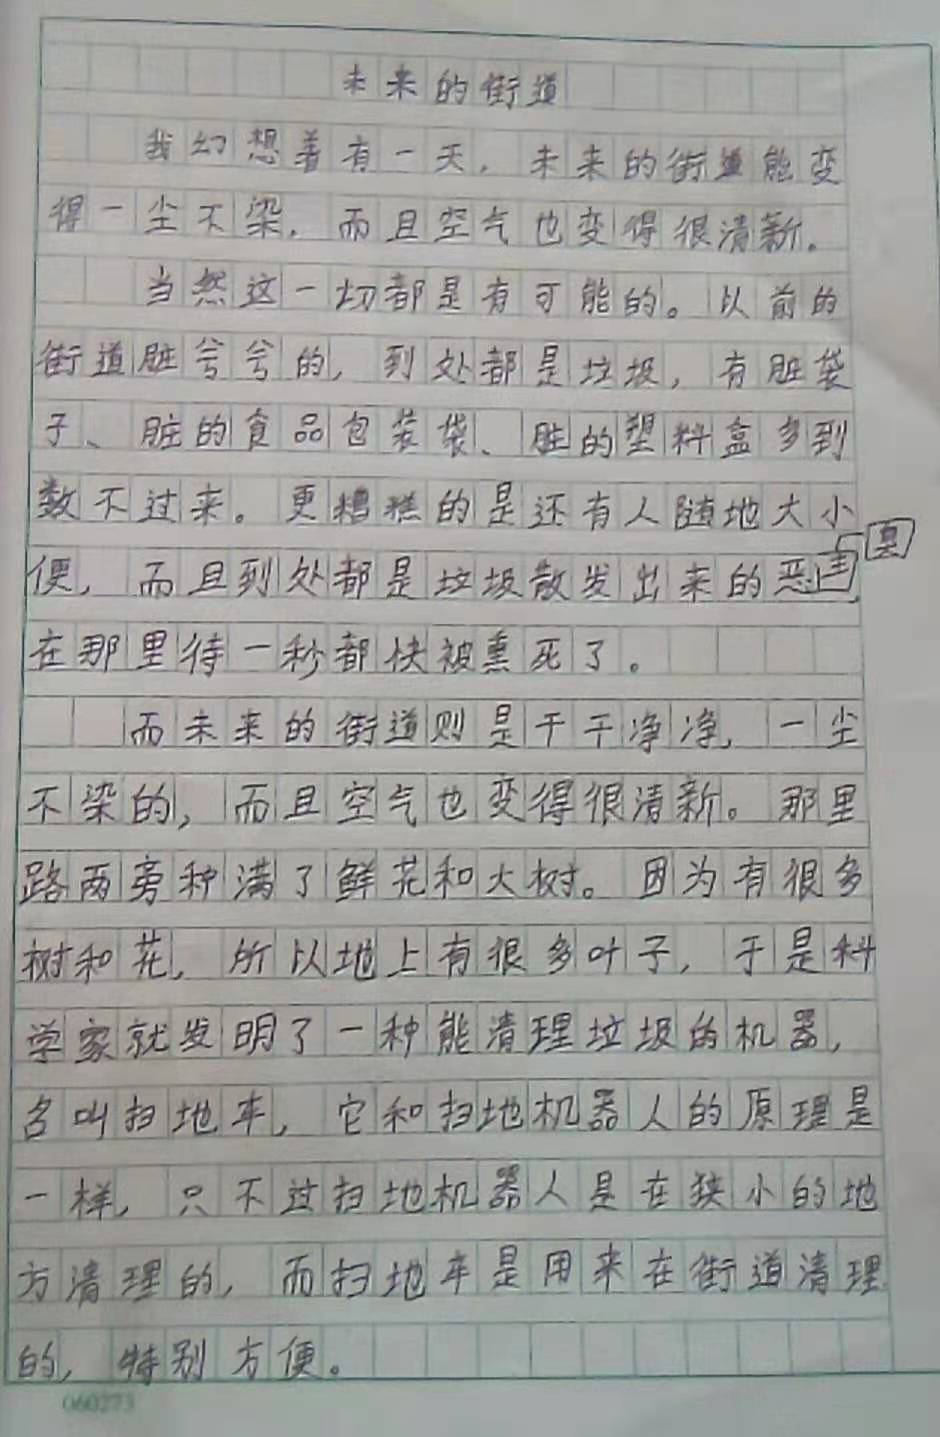 未来的街道
我幻想着有一天，未来的街道能变
得一尘不染，而且空气也变得很清新。
当然这一切都是有可能的。以前的
街道脏兮兮的，到处都是垃圾，有脏袋
子、脏的食品包装袋、脏的塑料盒多到
数不过来。更糟糕的是还有人随地大小
便，而且到处都是垃圾散发出来的恶臭，
在那里待一秒都快被熏死了。
而未来的街道则是干干净净，一尘
不染的，而且空气也变得很清新。那里
路两旁种满了鲜花和大树。因为有很多
树和花，所以地上有很多叶子，于是科
学家就发明了一种能清理垃圾的机器，
名叫扫地车，它和扫地机器人的原理是
一样，只不过扫地机器人是在狭小的地
方清理的，而扫地车是用来在街道清理
的，特别方便。
060273